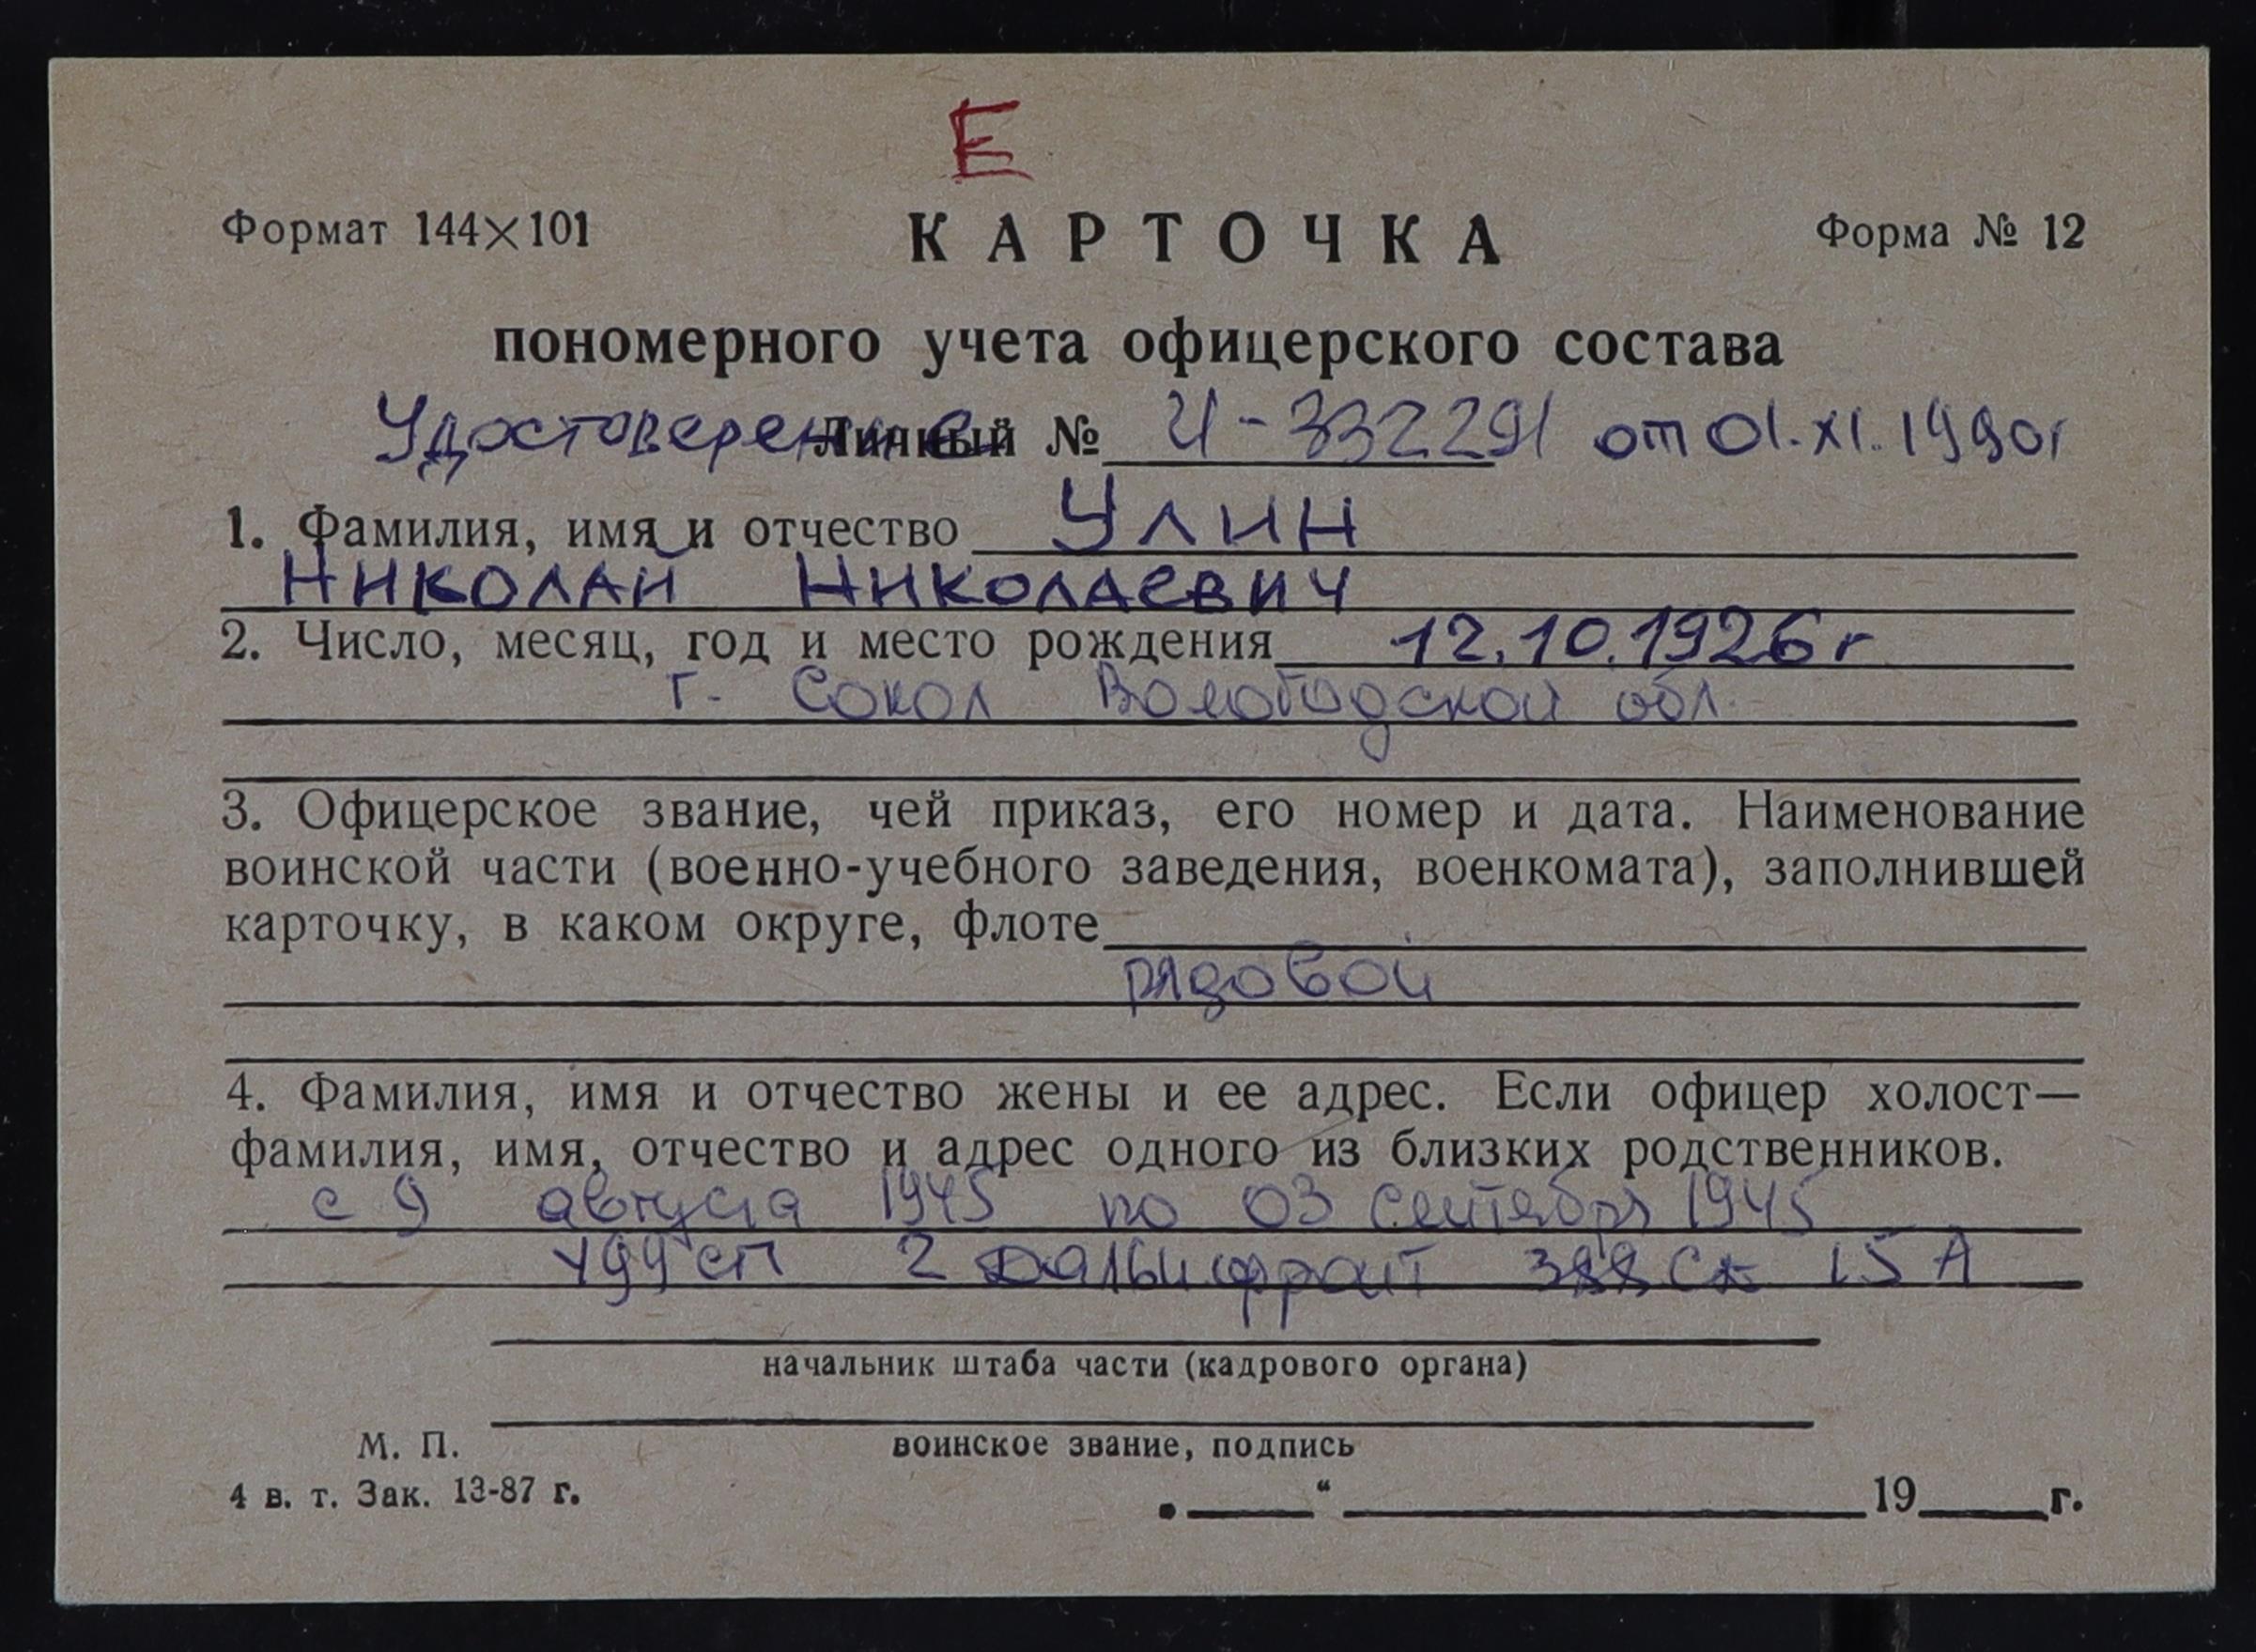 Е
Формат 144×101 КАРТОЧКА Форма № 12
пономерного учета офицерского состава
Удостоверение Личный № И-332291 от 01.XI.1990г
1. Фамилия, имя и отчество Улин
Николай Николаевич
2. Число, месяц, год и место рождения 12.10.1926г
г. Сокол Вологодской обл.
3. Офицерское звание, чей приказ, его номер и дата. Наименование
воинской части (военно-учебного заведения, военкомата), заполнившей
карточку, в каком округе, флоте
рядовой
4. Фамилия, имя и отчество жены и ее адрес. Если офицер холост—
фамилия, имя, отчество и адрес одного из близких родственников.
с 9 августа 1945 по 03 сентября 1945
499 сп 2 Дальн фронт 388 СК 15 А
начальник штаба части (кадрового органа)
М. П.
воинское звание, подпись
4 в. т. Зак. 13-87 г.
„ “ 19 г.